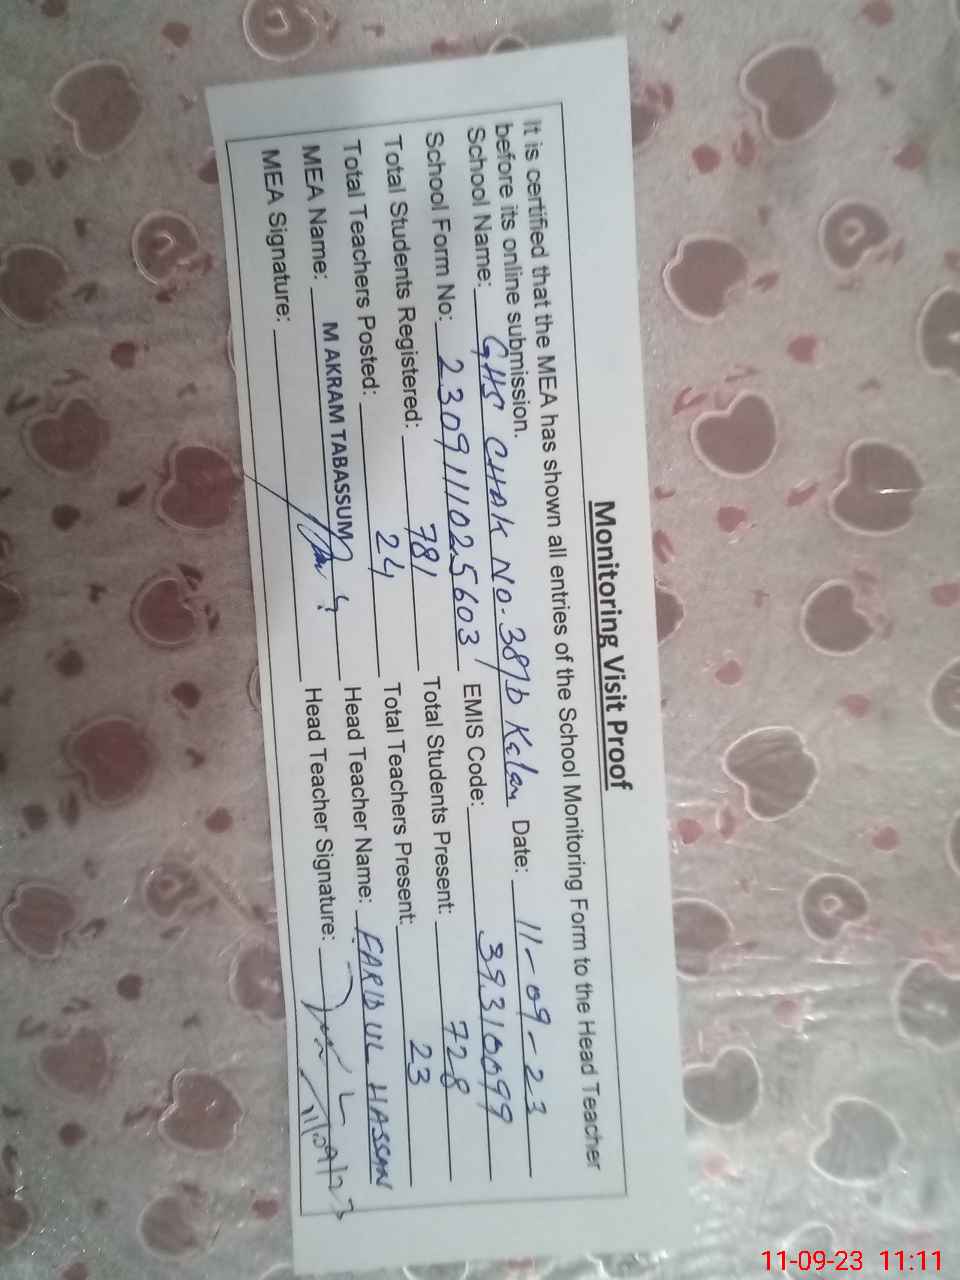 Monitoring Visit Proof
It is certified that the MEA has shown all entries of the School Monitoring Form to the Head Teacher
before its online submission.
School Name: GHS CHAK NO. 387b Kalan Date: 11-09-23
School Form No: 23091110 25603 EMIS Code: 39310099
Total Students Registered: 781 Total Students Present: 728
Total Teachers Posted: 24 Total Teachers Present: 23
MEA Name: M AKRAM TABASSUM Head Teacher Name: FARID UL HASSAN
MEA Signature: Head Teacher Signature:
11/09/23
11-09-23 11:11